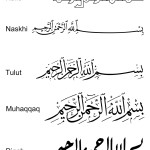 Naskhi
بسم الله الرحمن الرحيم
Tulut
بسم الله الرحمن الرحيم
Muhaqqaq
بسم الله الرحمن الرحيم